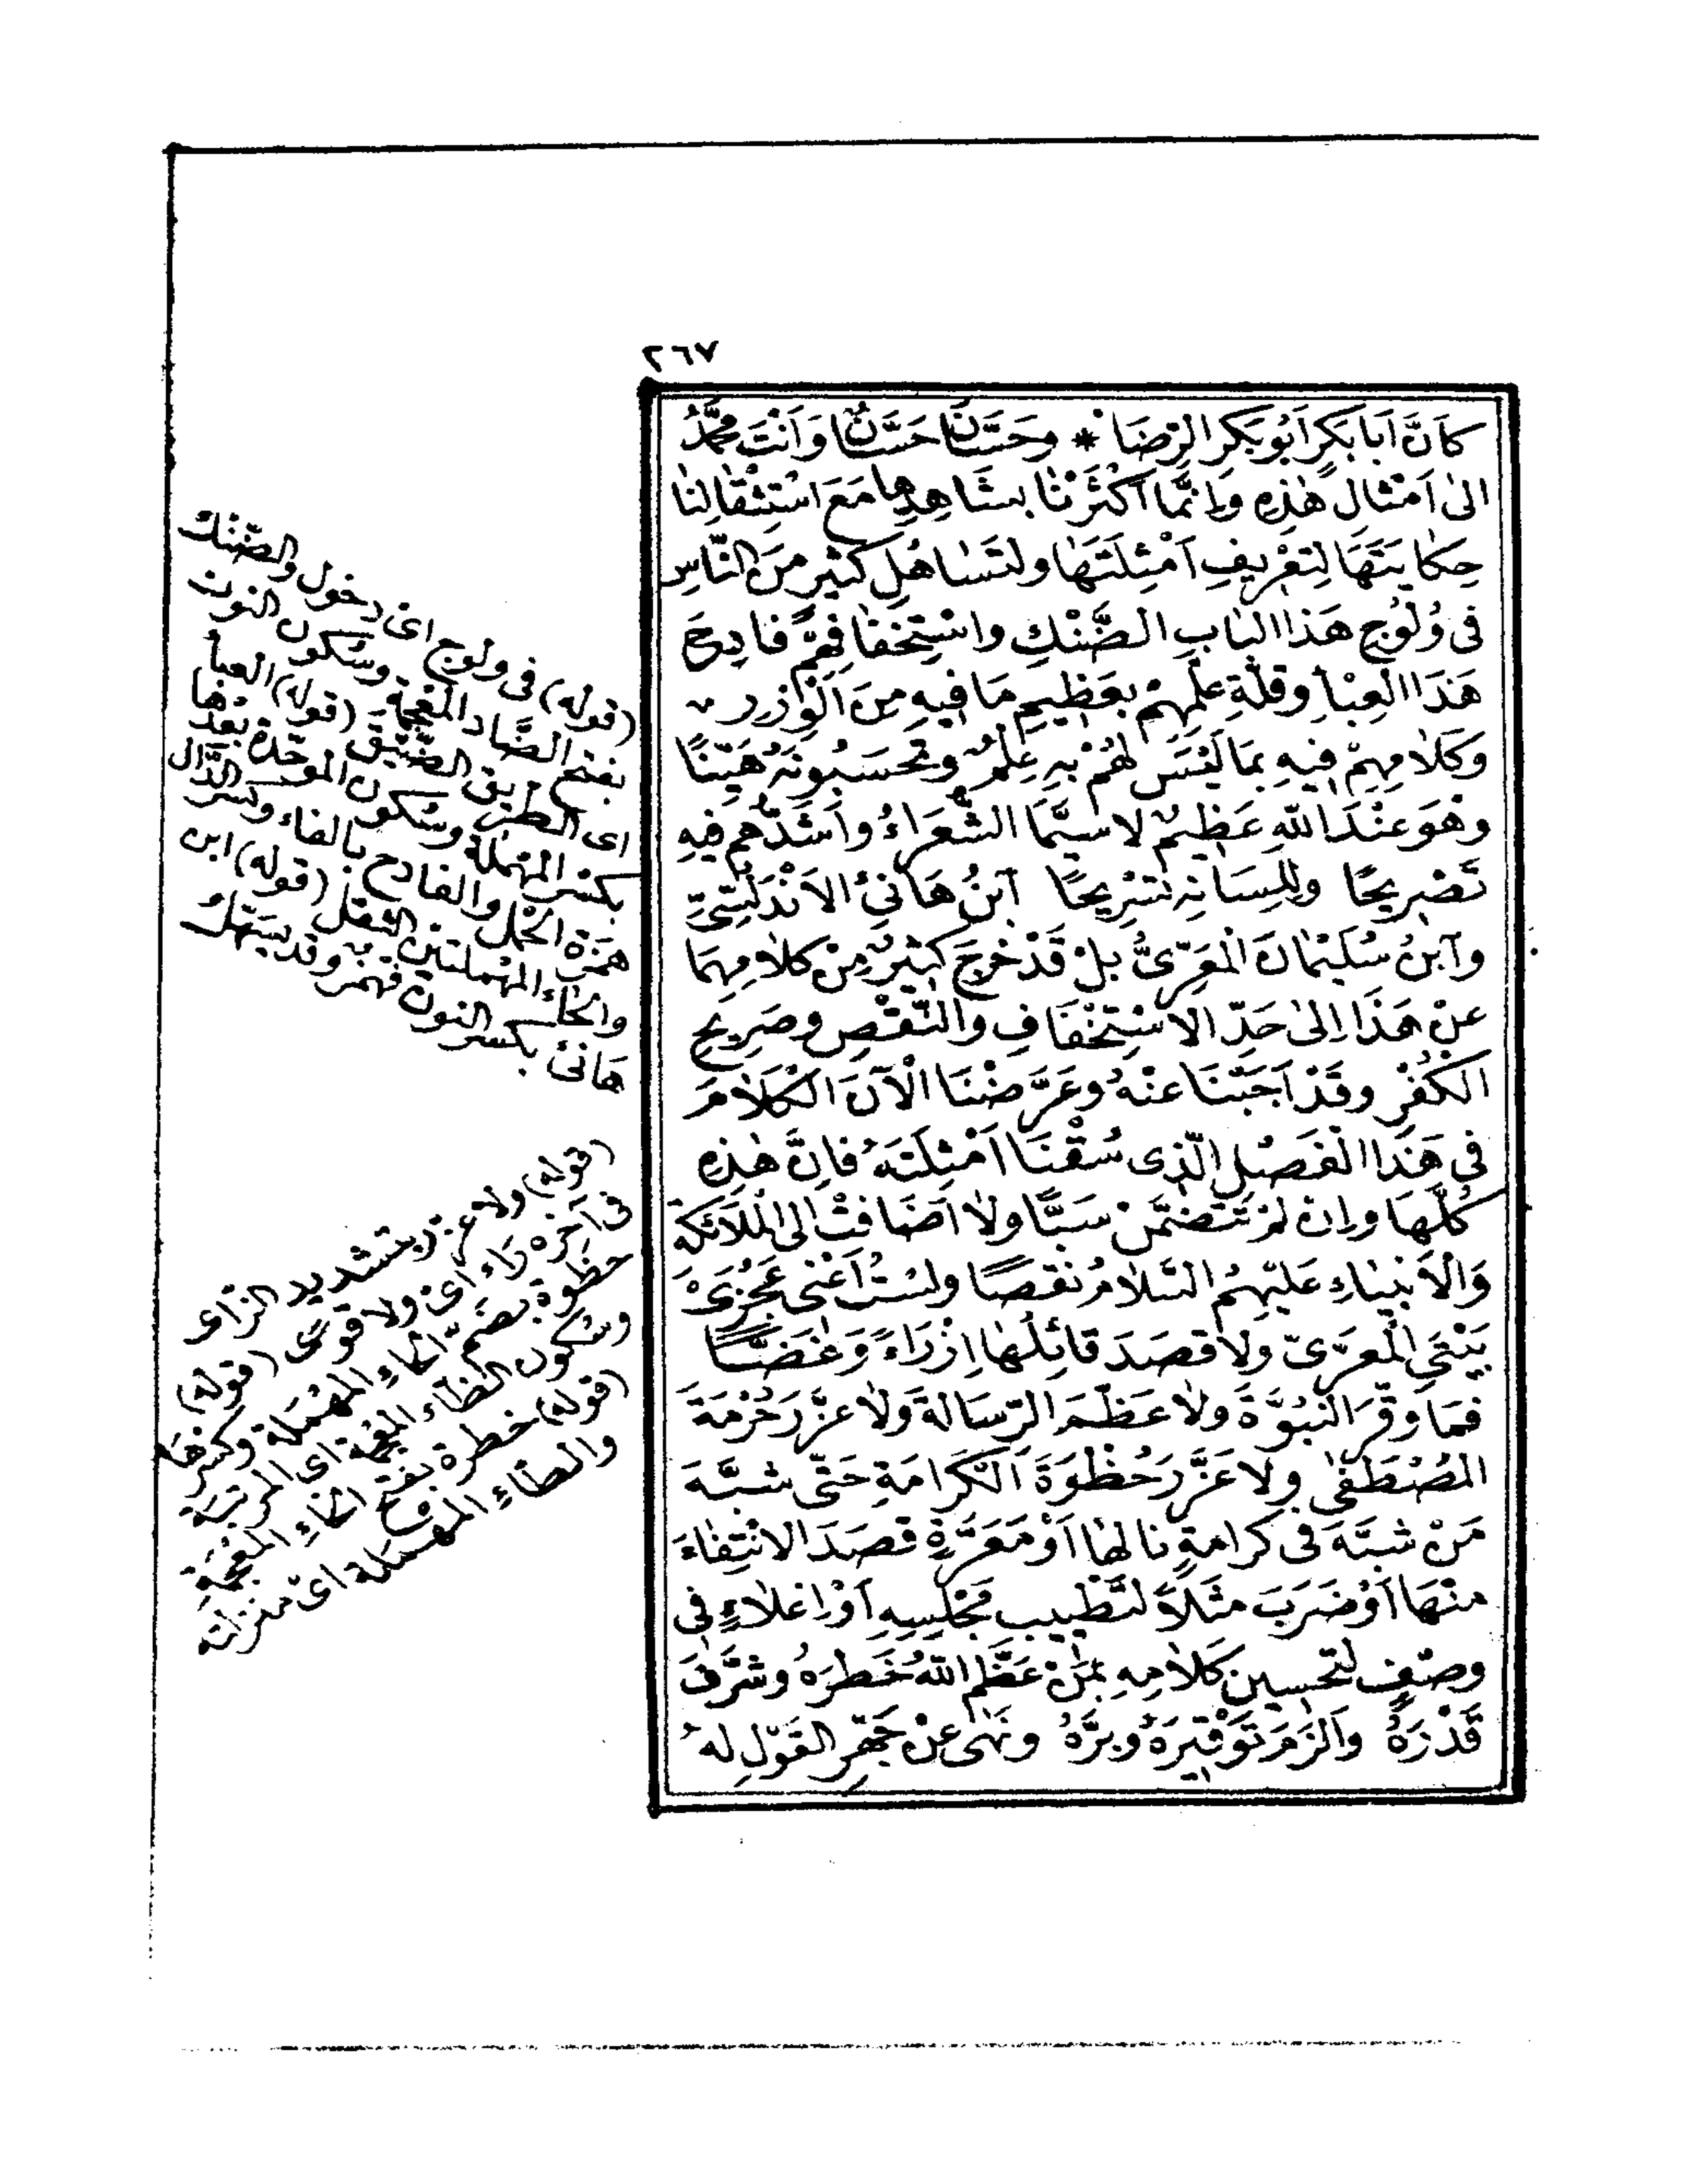 ٢٦٧
كَاَنَّ اَبَا بَكْرٍ اَبُو بَكْرِ الرِّضَا * وحَسَّانَ حَسَّانٌ وَاَنْتَ مُحَمَّدُ
الىٰ اَمْثَالِ هٰذِهِ وَاِنَّمَا اَكْثَرْنَا بِشَاهِدِهَا مَعَ اسْتِثْقَالِنَا
حِكَايَتَهَا لِتَعْرِيفِ اَمْثِلَتَهَا ولتَسَاهُلِ كَثيرٍ مِنَ النَّاسِ
فى وُلُوْجِ هَذَا البَابِ الضَّنْكِ واسْتِخفَافِهِمْ فَادِحَ
هَذَا العِبْأِ وقلَّةِ عِلْمِهِمْ بعَظِيمِ مَا فِيهِ مِنَ الْوِزْرِ
وَكَلَامِهِمْ فِيهِ بمَا لَيْسَ لَهُمْ بِهِ عِلْمٌ وتَحْسَبُونَهُ هَيِّنًا
وهْوَ عنْدَ اللّٰهِ عَظِيمٌ لا سِيَّمَا الشُّعَرَاءُ واَشَدُّهم فِيهِ
تَصْرِيحًا وللِسَانِهِ تَسْرِيحًا آبنُ هَانِئ الاَنْدَلُسِىُّ
وآبنُ سُلَيْمَانَ الْمَعَرِّىُّ بلْ قَدْ خرَجَ كَثِيرٌ مِنْ كلامِهِمَا
عنْ هَذَا اِلىٰ حَدِّ الاسْتِخْفَافِ والنَّقْصِ وصَرِيحِ
الكُفْرِ وقَدْ اَجَبْنَا عنْهُ وغَرَضُنَا الْآنَ الكَلَامُ
فى هَذَا الفَصْلِ الَّذِى سُقْنَا اَمْثِلَتَهُ فاِنَّ هٰذِهِ
كُلَّهَا واِنْ لمْ تَتَضَمَّنْ سَبًّا ولَا اَضَافَتْ اِلىَ الْمَلَائكَةِ
وَالْاَنْبِيَاءِ عَلَيْهِمُ السَّلَامُ نَقْصًا ولسْتُ اَعْنى عَجُزَىْ
بَيْتَىِ الْمَعَرِّىّ ولَا قَصَدَ قَائِلُهَا اِزْرَاءً وَغَضًّا
فمَا وقَّرَ النُّبُوَّةَ ولا عَظَّمَ الرِّسَالَةَ وَلَا عزَّرَ حُرْمَةَ
المُصْطَفىٰ ولا عَزَّرَ حُظْوَةَ الكَرَامَةِ حَتّى شبَّهَ
مَنْ شبَّهَ فى كرَامةٍ نالهَا اَوْ مَعَرَّةٍ قصَدَ الانْتِفَاءَ
منْهَا اَوْ ضَرَبَ مثَلًا لتَطْيِيبِ مَجْلِسِهِ اَوْ اِغلاءٍ فى
وصْفٍ لتحْسِينِ كلَامِهِ بمَنْ عَظَّمَ اللّٰهُ خَطَرَهُ وشرَّفَ
قَدْرَهُ وَاَلزَمَ تَوْقِيرَهُ وبِرَّهُ ونَهَى عنْ جَهْرِ القَوْلِ لهُ
(قوله) فى ولوج اى دخول والضنك
بفتح الضاد المعجمة وسكون النون
اى الطريق الضيق (قوله) العبأ
بكسر المهملة وسكون الموحدة بعدها
همزة الحمل والفادح بالفاء وكسر الدال
والحاء المهملتين الثقل (قوله) ابن
هانئ بكسر النون فهمز وقد يسهل
(قوله) ولا عزر بتشديد الزاء
فى آخره راء اى ولا قوى (قوله)
حظوة بضم الحاء المهملة وكسرها
وسكون الظاء المعجمة اى المرتبة
(قوله) خطره بفتح الخاء المعجمة
والطاء المهملة اى منزلته